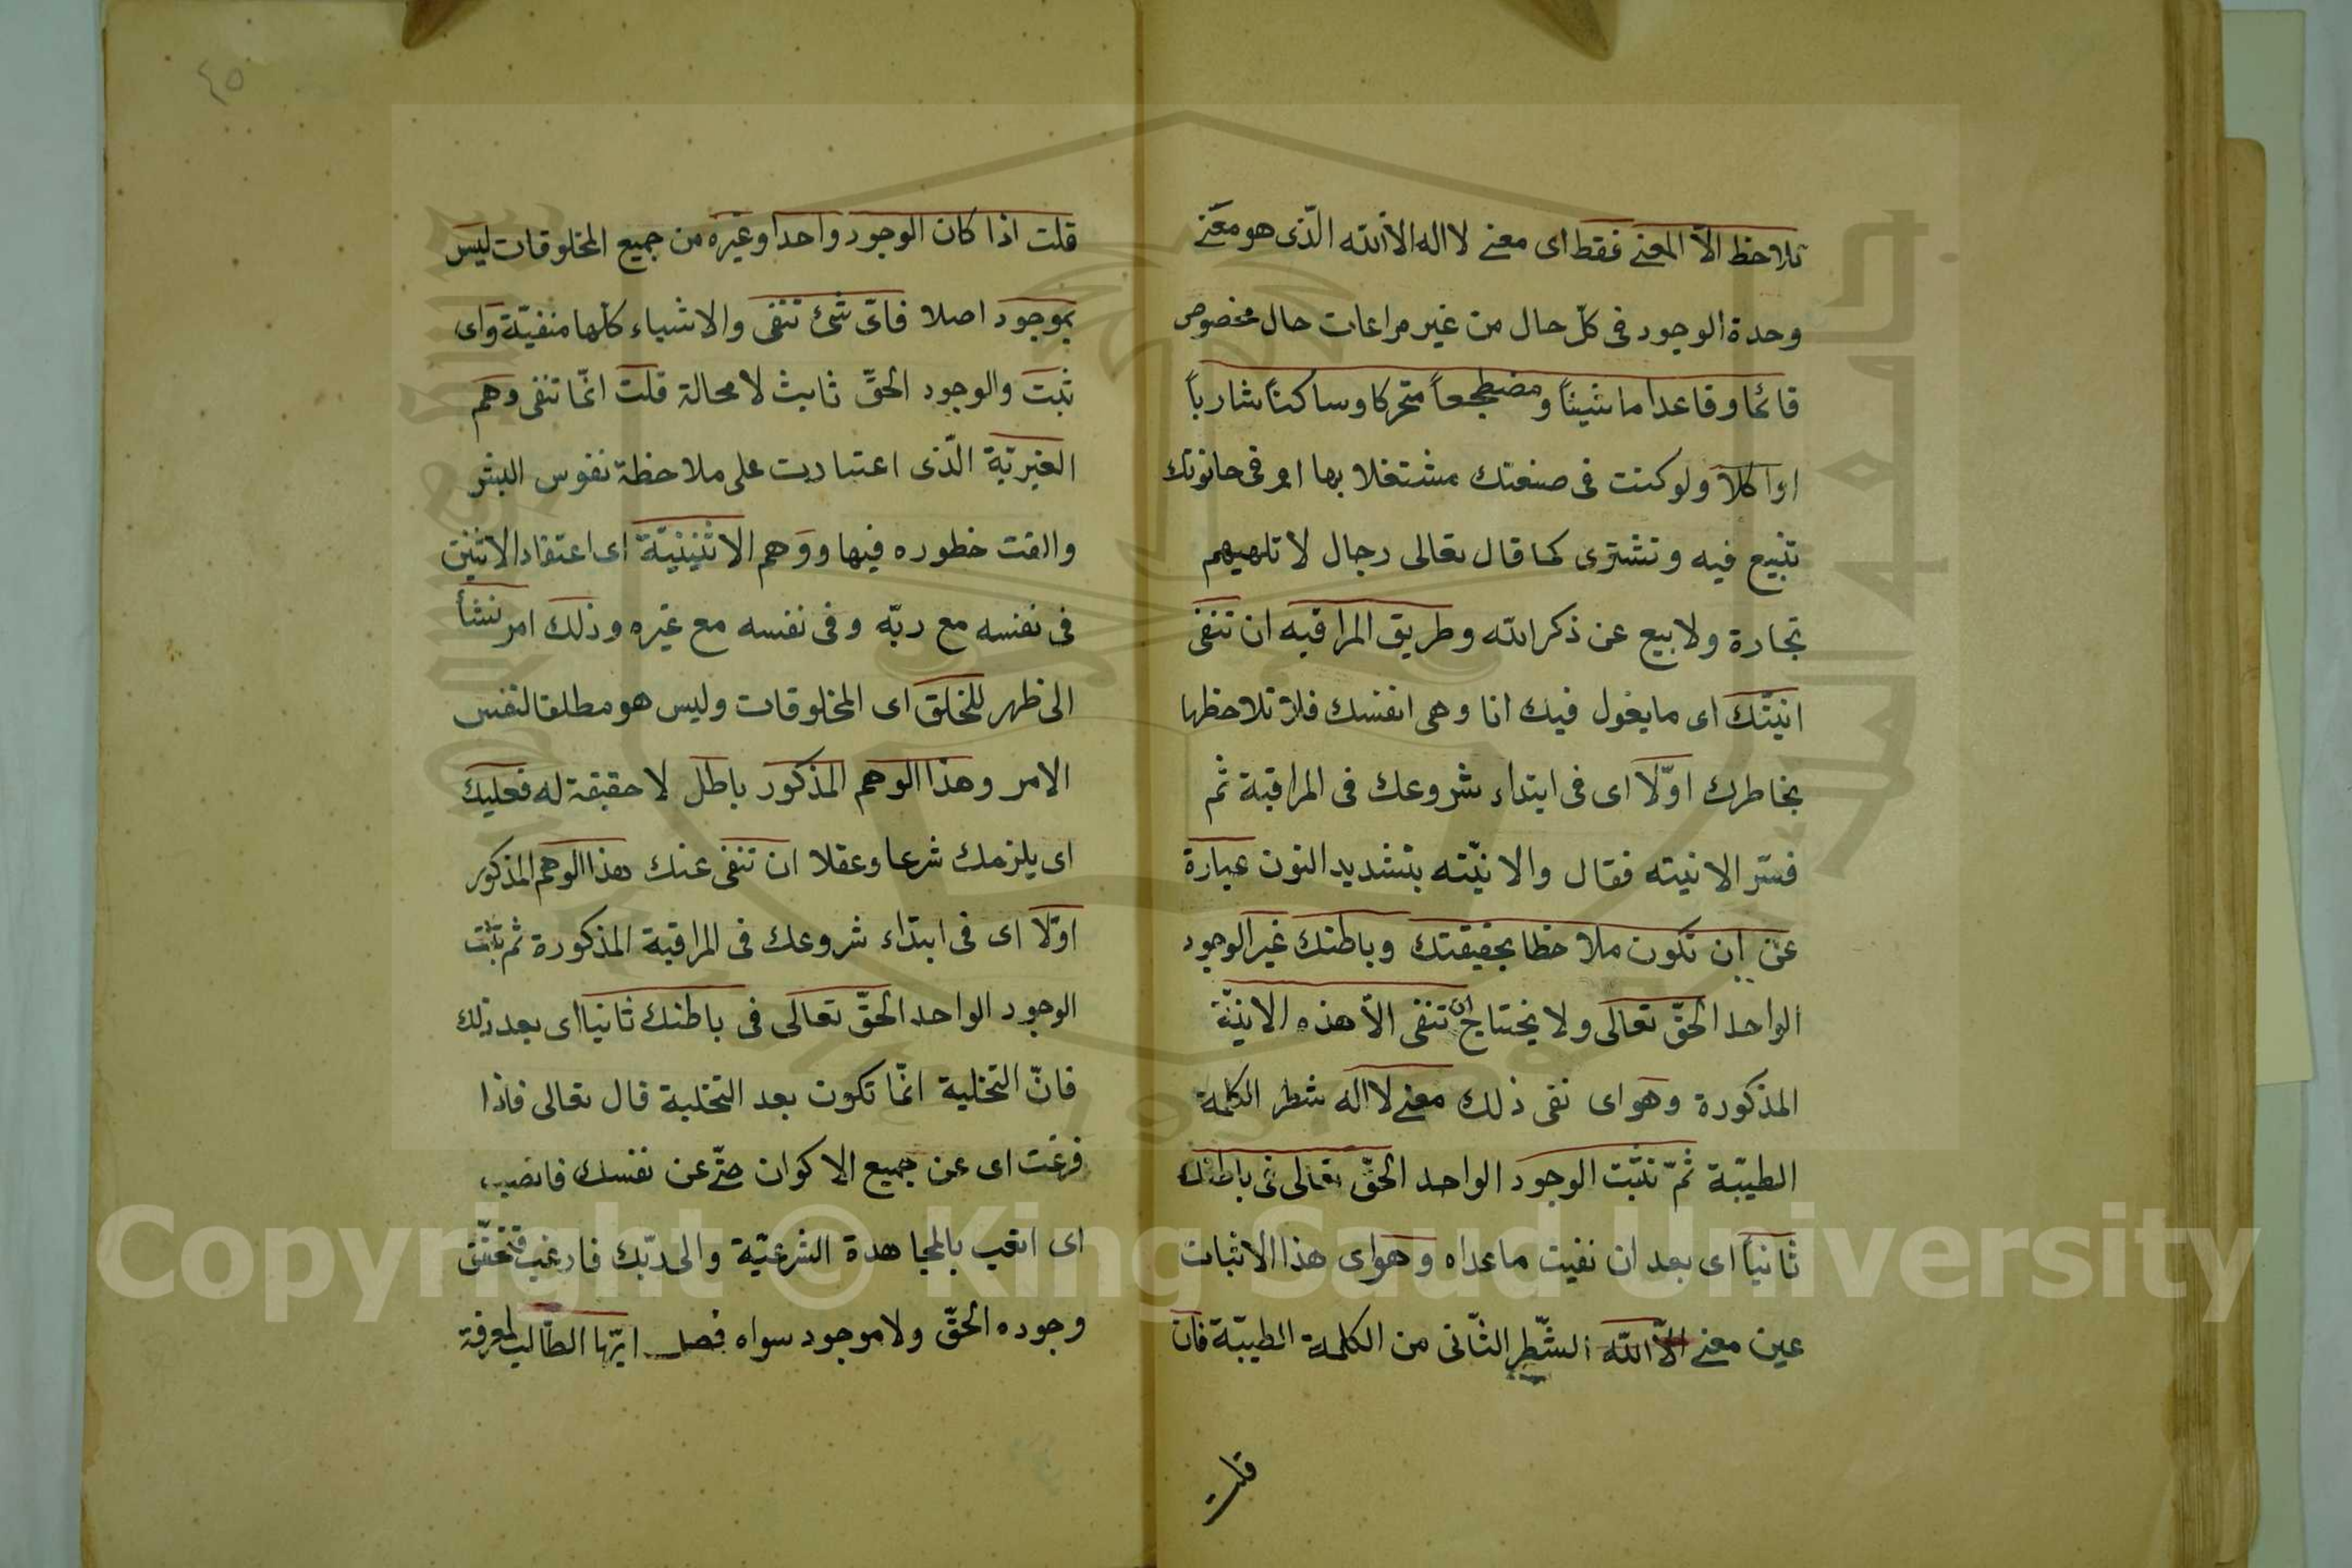 تلاحظ الاّ المعنى فقط اى معنى لا اله الا الله الّذى هو معنى
وحدة الوجود فى كلّ حال من غير مراعات حال مخصوص
قائما وقاعدا ماشيئاً ومضطجعاً متحركا وساكناً شارباً
او اكلاً ولو كنت فى صنعتك مشتغلا بها او فى حانوتك
تبيع فيه وتشترى كما قال تعالى رجال لا تلهيهم
تجارة ولا بيع عن ذكر الله وطريق المراقبه ان تنفى
انيّتك اى ما يغول فيك انا وهى انفسك فلا تلاحظها
بخاطرك اوّلا اى فى ابتداء شروعك فى المراقبة ثم
فسّر الانيته فقال والانيّته بتشديد النون عبارة
عن ان تكون ملاحظا بحقيقتك وباطنك غير الوجود
الواحد الحقّ تعالى ولا يحتاج ان تنفى الاّ هذه الانيّة
المذكورة وهو اى نفى ذلك معنى لا اله شطر الكلمة
الطيّبة ثمّ تثبّت الوجود الواحد الحقّ تعالى فى باطنك
ثانياً اى بعد ان نفيت ماعداه وهو اى هذا الاثبات
عين معنى الاّ الله الشّطر الثّانى من الكلمة الطيبّة فان
قلت
٤٥
قلت اذا كان الوجود واحدا وغيره من جميع المخلوقات ليس
بموجود اصلا فاىّ شئ تنفى والاشياء كلّها منفيّة واى
تثبت والوجود الحقّ ثابث لا محالة قلت انّما تنفى وهم
الغيريّة الّذى اعتباديت على ملاحظة نفوس البشر
والفت خطوره فيها ووهم الاثنينيّة اى اعتقاد الاثنين
فى نفسه مع ربّه وفى نفسه مع غيره وذلك امر نشأ
الى ظهر للخلق اى المخلوقات وليس هو مطلقا لنفس
الامر وهذا الوهم المذكور باطل لا حقيقة له فعليك
اى يلزمك شرعا وعقلا ان تنفى عنك هذا الوهم المذكور
اوّلا اى فى ابتداء شروعك فى المراقبة المذكورة ثم تثبت
الوجود الواحد الحقّ تعالى فى باطنك ثانيا اى بعد ذلك
فانّ التخلية انّما تكون بعد التخلية قال تعالى فاذا
فرغت اى عن جميع الاكوان حتّى عن نفسك فانصب
اى اتعب بالمجاهدة الشرعيّة والى ربّك فارغب
وجوده الحقّ ولا موجود سواه فصل ايّها الطّالب لمعرفة
Copyright © King Saud University